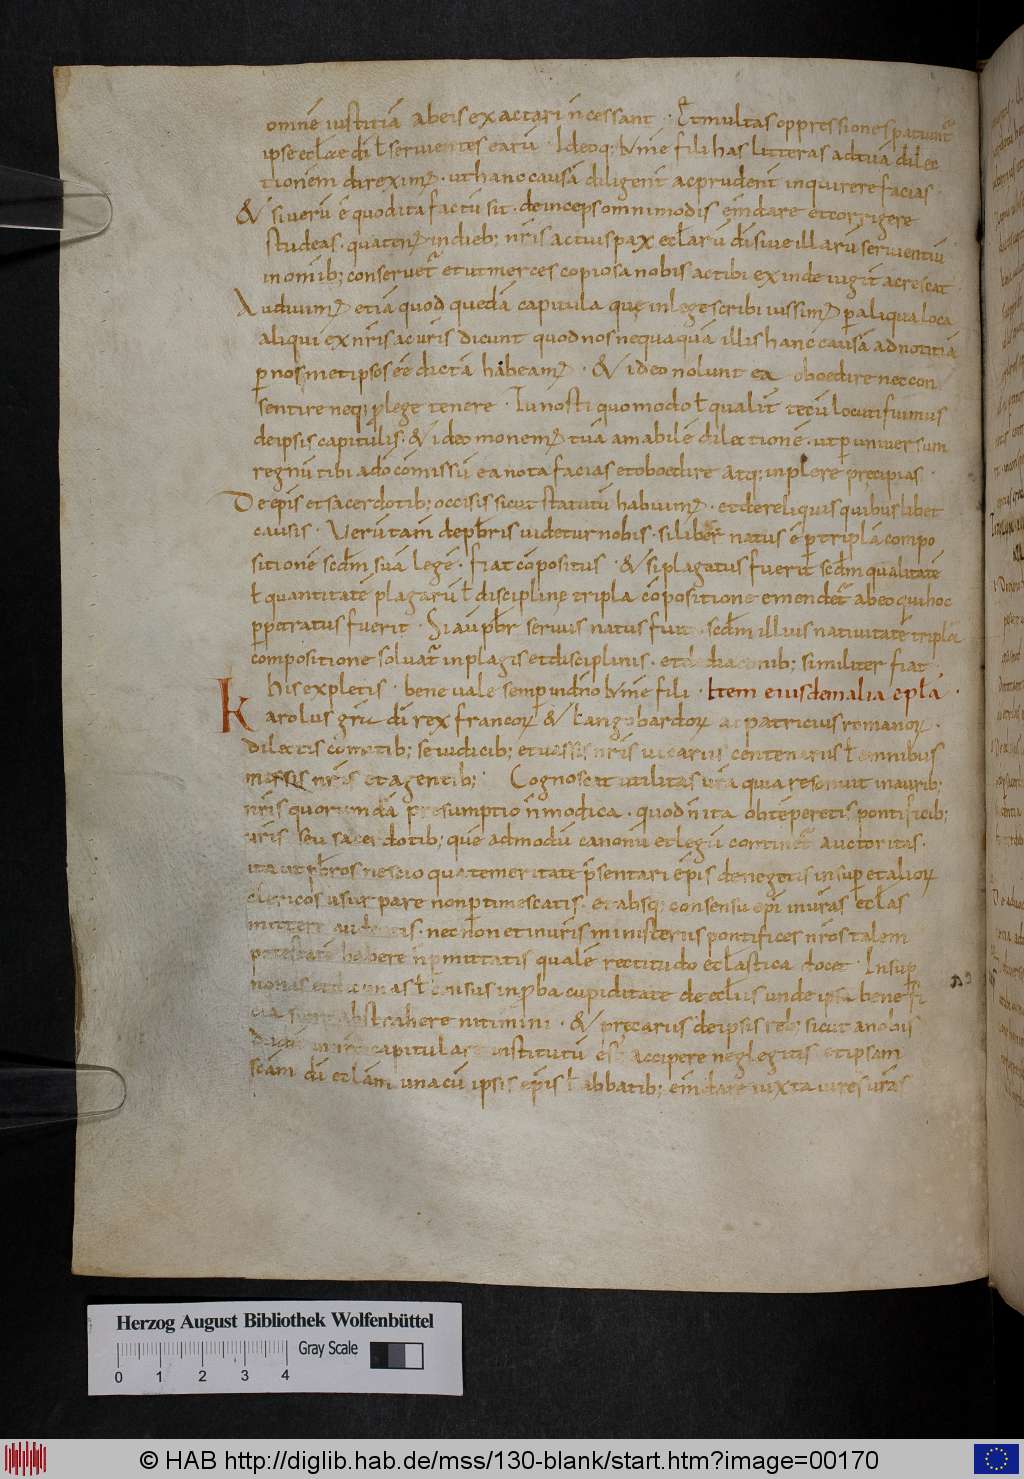 omnē iustitiā ab eis exactari n̄ cessant · Et multas oppressiones patiunt̄
ipse eccl̄ae dī ł servientes earū · Ideoq; kr̄me fili has litteras ad tuā dilec
tionem direxim; · ut hanc causā diligent̄ ac prudent̄ inquirere facias ·
& si verū ē quod ita factū sit · deinceps omnimodis em̄dare et corrigere
studeas · quaten; in dieb; nr̄is ac tuis pax eccl̄arū dī sive illarū servientiū
in omīb; conservet̄ et ut merces copiosa nobis ac tibi exinde iugit̄ acrescat ·
Audivim; etiā quod quedā capitula quę in lege scribi iussim; p̄ aliqua loca
aliqui ex nr̄is ac vr̄is dicunt quod nos nequaquā illis hanc causā ad notitiā
p̄ nosmetipsos ēe dictā habeam; · & ideo nolunt ea oboedire nec con
sentire neq; p̄ lege tenere · Tu nosti quomodo ł qualit̄ tecū locuti fuimus
de ipsis capitulis · & ideo monem; tuā amabilē dilectionē · ut p̄ universum
regnū tibi a dō cōmissū ea nota facias et oboedire atq; inplere precipias ·
De ep̄is et sacerdotib; occisis sicut statutū habuim; · et de reliquis quibuslibet
causis · Verūtam̄ de pb̄ris videtur nobis · si liber natus ē p̄ triplā compo
sitionē scdm̄ suā legē · fiat cōpositus · & si plagatus fuerit scdm̄ qualitatē
ł quantitatē plagarū ł disciplinę tripla cōpositione emendet̄ ab eo qui hoc
p̄petratus fuerit · Si aū pb̄r servus natus fuit · scdm̄ illius nativitatē triplā
compositione solvat̄ in plagis et disciplinis · et de diaconib; similiter fiat ·
His expletis · bene vale semp̄ in dn̄o kr̄me fili · Item eiusdem alia epl̄a ·
Karolus gr̄a dī rex francor̄ & langobardor̄ ac patricius romanor̄ ·
dilectis comitib; seu iudicib; et vassis nr̄is vicariis centenariis ł omnibus
missis nr̄is et agentib; · Cognoscat utilitas vr̄a quia resonuit in aurib;
nr̄is quorundā presumptio n̄ modica · quod n̄ ita obtēperetis pontificib;
vr̄is seu sacerdotib; quē admodū canonū et legū continet̄ auctoritas ·
ita ut pb̄ros nescio qua temeritate p̄sentari ep̄is denegetis insup̄ et alior̄
clericos usurpare non p̄timescatis · et absq; consensu ep̄i in vr̄as eccl̄as
mittere audeatis · necnon et in vr̄is ministeriis pontifices nr̄os talem
potestatē habere n̄ p̄mittatis qualē rectitudo eccl̄astica docet · Insup̄
nonas et decimas ł census inp̄ba cupiditate de eccl̄iis unde ipsa benefi
cia sunt abstrahere nitimini · & precariis de ipsis reb; sicut a nobis
dudū in nr̄o capitulare institutū est accipere neglegitis et ipsam
scām dī eccl̄am una cū ipsis ep̄is ł abbatib; em̄dare iuxta vires vr̄as
Herzog August Bibliothek Wolfenbüttel
Gray Scale
0 1 2 3 4
© HAB http://diglib.hab.de/mss/130-blank/start.htm?image=00170